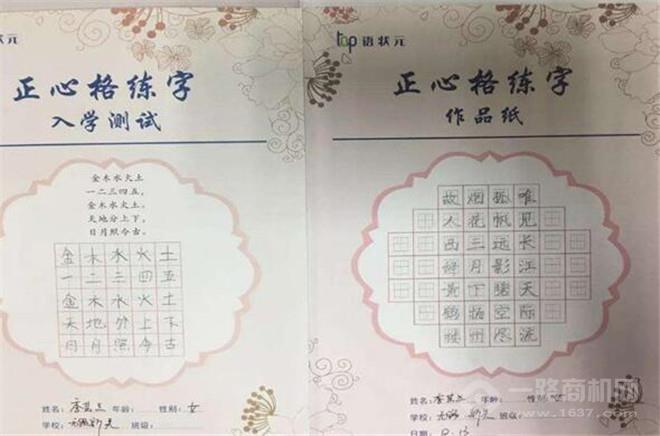 状元
正心格练字
入学测试
金木水火土
一二三四五,
金木水火土。
天地分上下,
日月照今古。
金木水火土
一二三四五
金木水火土
天地外上下
日月照今古
姓名: 年龄: 性别:女
学校: 班级:
top 语状元
正心格练字
作品纸
故烟孤唯
人花帆见
西三远长
辞月影江
黄下碧天
鹤扬空际
楼州尽流
姓名: 年龄: 性别:女
学校: 班级:
日期:
一路商机网
www.1637.com